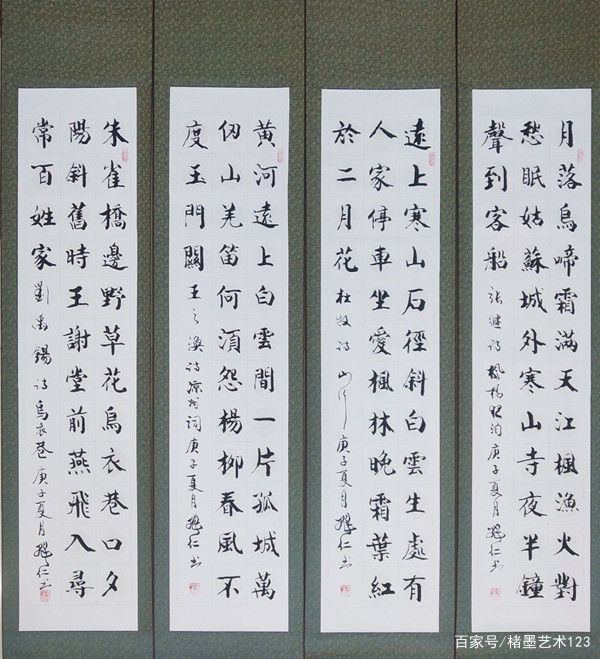 月落烏啼霜满天江楓漁火對
愁眠姑蘇城外寒山寺夜半鐘
聲到客船 張継詩 楓橋夜泊 庚子夏月 仁书
遠上寒山石徑斜白雲生處有
人家停車坐愛楓林晚霜葉紅
於二月花 杜牧詩 山行 庚子夏月 仁书
黄河遠上白雲間一片孤城萬
仞山羌笛何須怨楊柳春風不
度玉門關 王之渙詩 涼州詞 庚子夏月 仁书
朱雀橋邊野草花烏衣巷口夕
陽斜舊時王謝堂前燕飛入尋
常百姓家 劉禹錫詩 烏衣巷 庚子夏月 仁书
百家号/楮墨艺术123